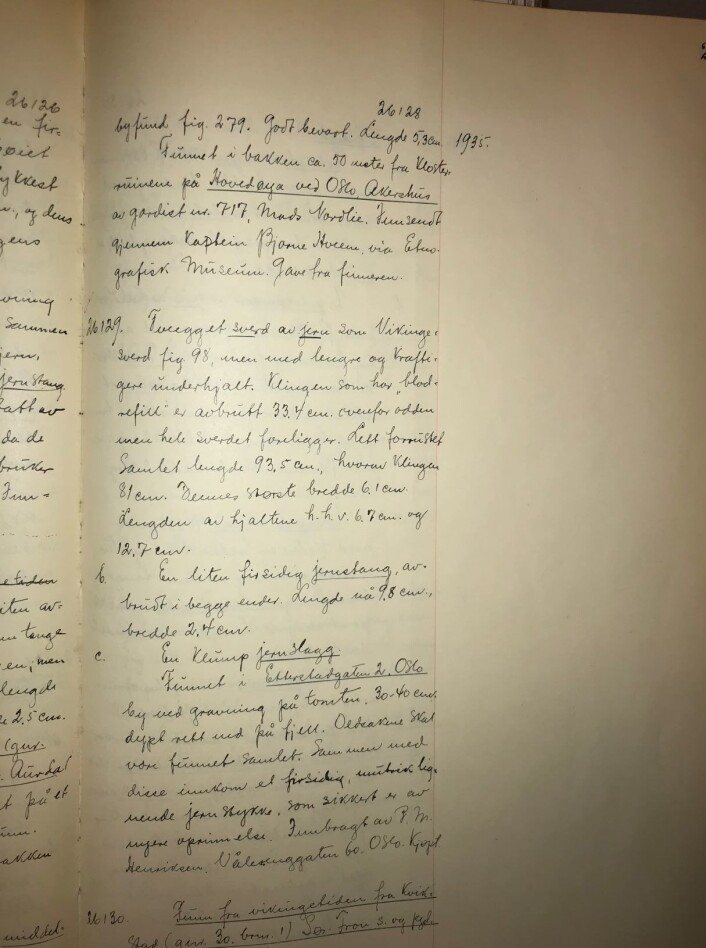 26126
en fir-
øiet
ykkest
, og dens
gens
vning
sammen
jern,
jernstang
tatt av
da de
bruker
Fun-
etiden
iten av-
m tange
en, men
lengde
e 2.5 cm.
(gnr.
Aurdal
t på et
unn.
akken
middel-
26128
byfund fig. 279. Godt bevart. Lengde 5,3 cm. 1935.
Funnet i bakken ca. 50 meter fra Kloster-
ruinene på Hovedøya ved Oslo, Akershus
av gardist nr. 717, Mads Nordlie. Innsendt
gjennem Kaptein Bjarne Hveem, via Etno-
grafisk Museum. Gave fra finneren.
26129. Tveegget sverd av jern som Vikinge-
sverd fig. 98, men med lengre og krafti-
gere underhjalt. Klingen som har "blod-
refill" er avbrutt 33.4 cm. ovenfor odden
men hele sverdet foreligger. Lett forrustet
Samlet lengde 93.5 cm., hvorav Klingen
81 cm. Dennes største bredde 6.1 cm.
Lengden av hjaltene h.h.v. 6.7 cm. og
12.7 cm.
b. En liten firsidig jernstang, av-
brudt i begge ender. Lengde nå 9,8 cm.,
bredde 2.4 cm.
c. En Klump jernslagg.
Funnet i Etterstadgaten 2, Oslo
by ved gravning på tomten, 30-40 cm.
dypt rett ned på fjell. Oldsakene skal
være funnet samlet. Sammen med
disse innkom et firsidig, mutrik lig-
nende jernstykke, som sikkert er av
nyere oprinnelse. Innbragt av P. M.
Henriksen, Vålerenggaten 60, Oslo. Kjøpt.
26130. Funn fra vikingetiden fra Kvik-
stad (gnr. 30, brnr. 1) Sør Fron s. og pgd.